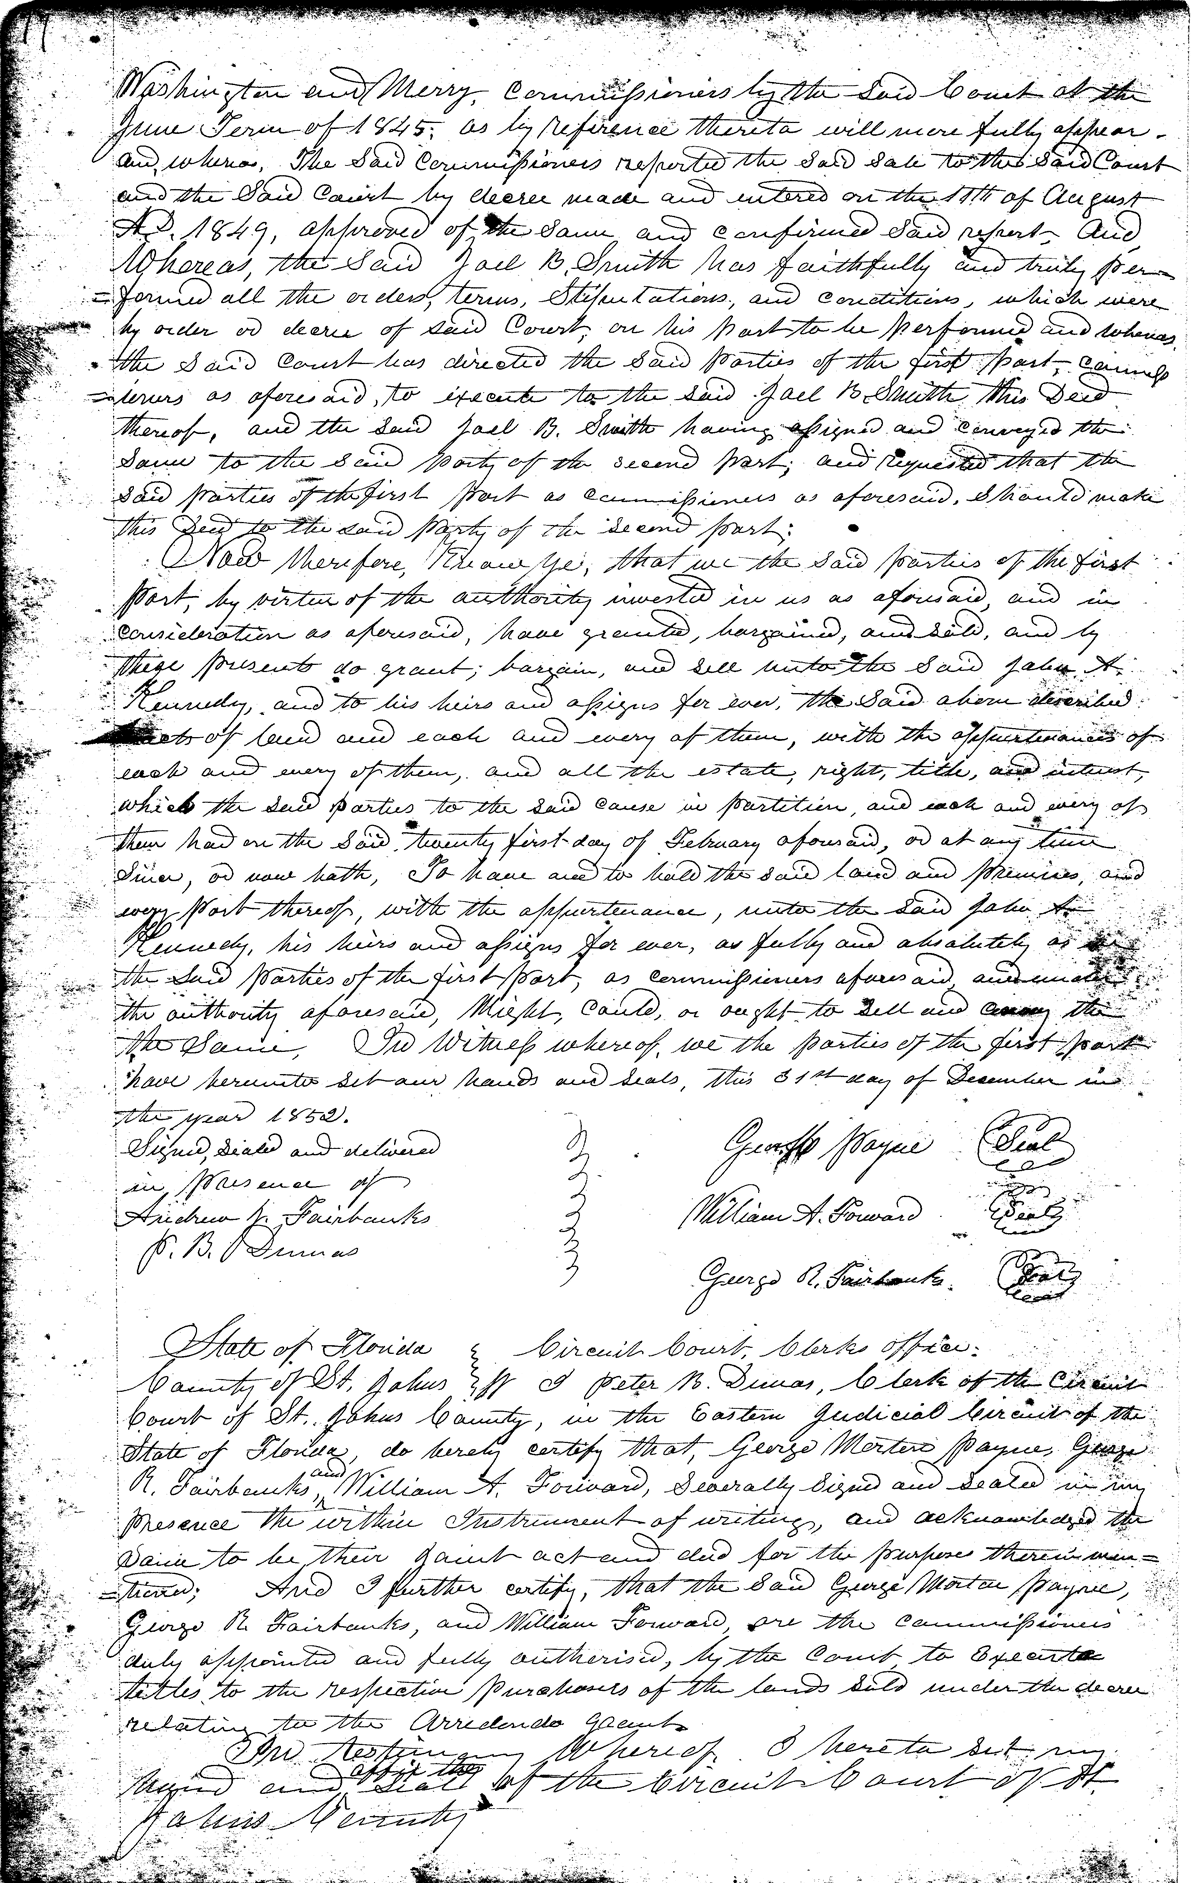 Washington and Merry, commissioners by the Said Court at the
June Term of 1845; as by reference thereto will more fully appear.
and, whereas, The Said Commissioners reported the Said Sale to the Said Court
and the Said Court by decree made and entered on the 11th of August
A.D. 1849, approved of the Same and confirmed Said report. And,
Whereas, the Said Joel B. Smith has faithfully and truly per=
=formed all the orders, terms, Stipulations, and conditions, which were
by order or decree of Said Court, on his part to be performed and whereas,
the Said Court has directed the Said Parties of the first Part, Commis
=sioners as aforesaid, to execute to the Said Joel B. Smith this Deed
thereof, and the Said Joel B. Smith having assigned and conveyed the
Same to the Said Party of the Second Part; and requested that the
Said parties of the first part as commissioners as aforesaid, Should make
this Deed to the Said Party of the Second part;
Now therefore, Know Ye, that we the Said parties of the first
Part, by virtue of the authority invested in us as aforesaid, and in
consideration as aforesaid, have granted, bargained, and Sold, and by
these presents do grant; bargain, and Sell unto the Said John A.
Kennedy, and to his heirs and assigns for ever, the Said above described
tracts of land and each and every of them, with the appurtenances of
each and every of them, and all the estate, right, title, and interest,
which the Said parties to the Said cause in partition, and each and every of
them had on the Said, twenty first day of February aforesaid, or at any time
Since, or now hath, To have and to hold the Said land and Premises, and
every Part thereof, with the appurtenance, unto the Said John A.
Kennedy, his heirs and assigns for ever, as fully and absolutely as we
the Said parties of the first part, as commissioners aforesaid, and under
the authority aforesaid, Might, could, or ought to Sell and convey the
the Same, In Witness whereof, we the parties of the first part
have hereunto Set our hands and Seals, this 31st day of December in
the year 1852.
Signed, Sealed and delivered
in Presence of
Andrew J. Fairbanks
P. B. Dumas
George Payne Seal
William A. Forward Seal
George R. Fairbanks. Seal
State of Florida Circuit Court, Clerks office.
County of St. Johns ss I Peter B. Dumas, Clerk of the Circuit
Court of St. Johns County, in the Eastern Judicial Circuit of the
State of Florida, do hereby certify that, George Morton Payne, George
R. Fairbanks, and William A. Forward, Severally Signed and Sealed in my
presence the within Instrument of writing, and acknowledged the
Same to be their joint act and deed for the purposes therein men=
=tioned; And I further certify, that the Said George Morton Payne,
George R. Fairbanks, and William Forward, are the commissioners
duly appointed and fully authorised, by the Court to Execute
tittles to the respective purchasers of the lands Sold under the decree
relating to the Arredondo Grant.
In testimony Whereof, I hereto Set my
hand and affix the Seal of the Circuit Court of St.
Johns County